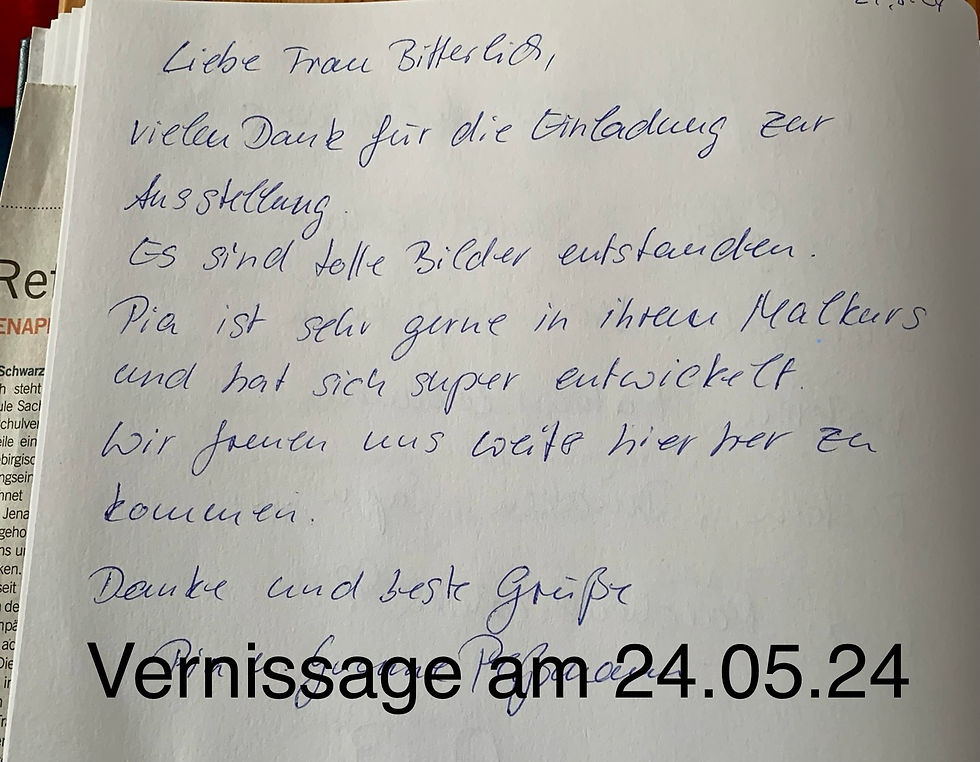 Liebe Frau Bitterlich,
vielen Dank für die Einladung zur
Ausstellung.
Es sind tolle Bilder entstanden.
Pia ist sehr gerne in ihrem Malkurs
und hat sich super entwickelt.
Wir freuen uns weiter hier her zu
kommen.
Danke und beste Grüße
Pia u.
Vernissage am 24.05.24
Ref
ENAPL
Schwarz
h steht
ule Sach
chulver
eile ein
birgisc
ngsein
hnet
Jena
geho
ns u
ken.
seit
de